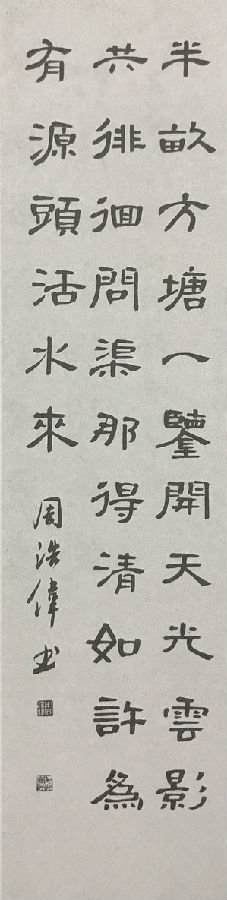 半畝方塘一鑒開天光雲影
共徘徊問渠那得清如許為
有源頭活水來
周浩偉书